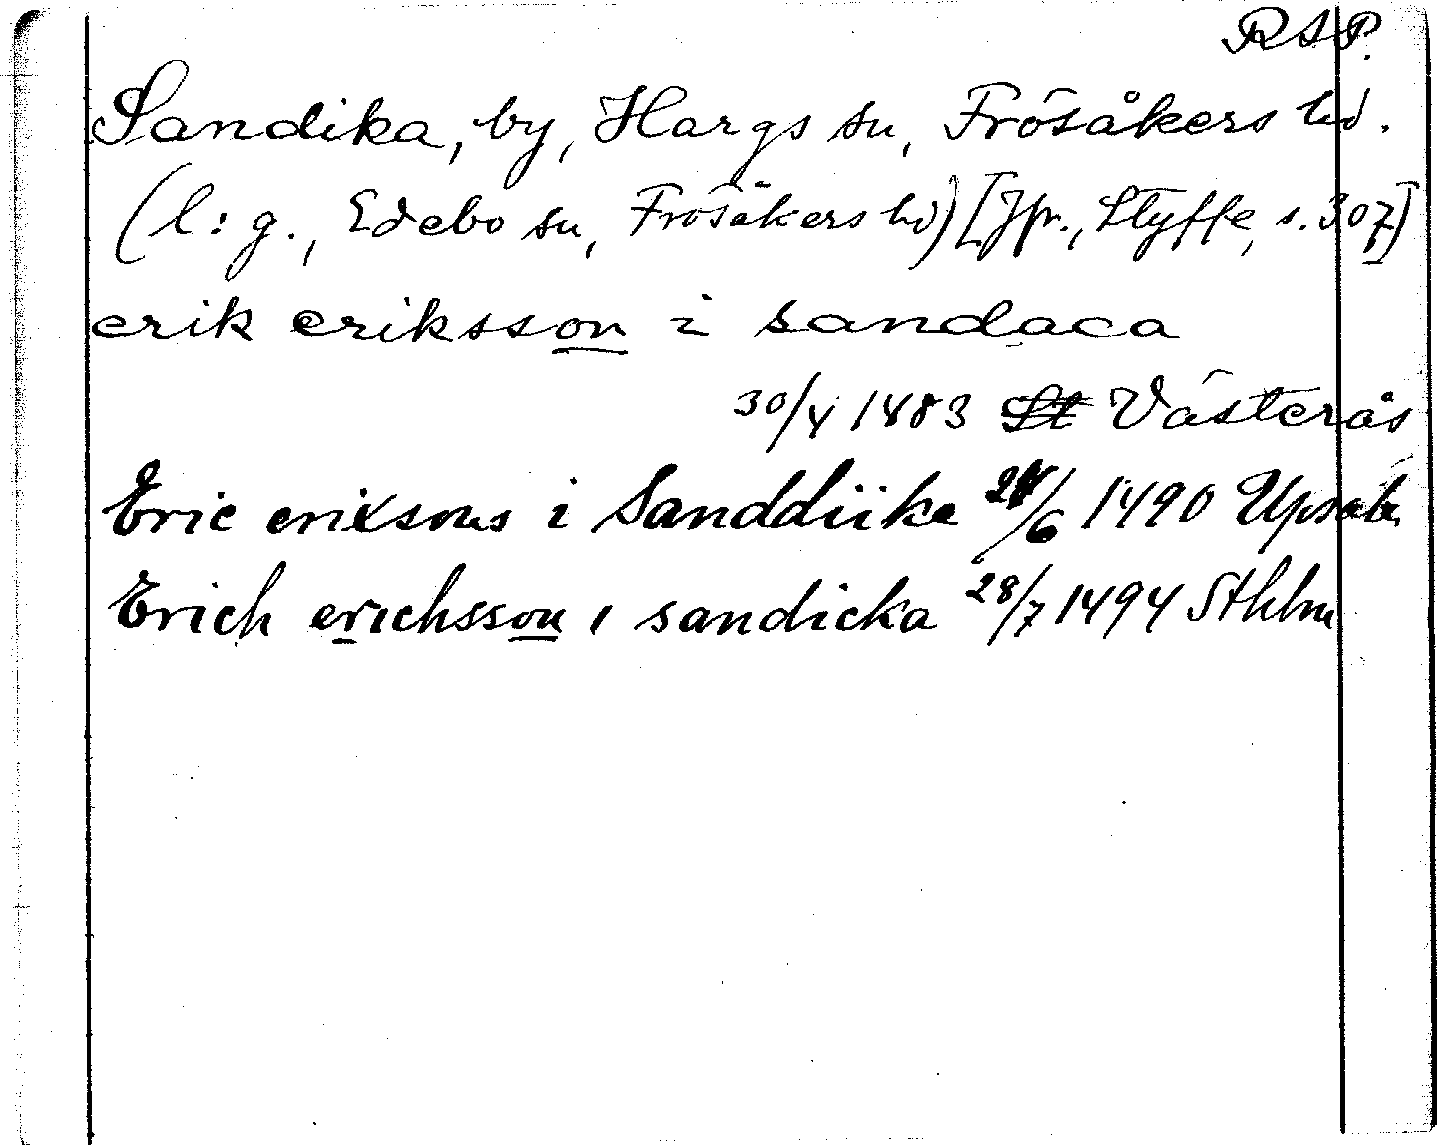 RSP.
Sandika, by, Hargs sn, Frösåkers hd.
(l:g., Edebo sn, Frösåkers hd) [Jfr., Styffe, s. 307]
erik eriksson i sandaca
30/4 1483 Västerås
Eric erixsons i Sanddiike 24/6 1490 Upsala
Erich erichsson i sandicka 28/7 1494 Sthlm